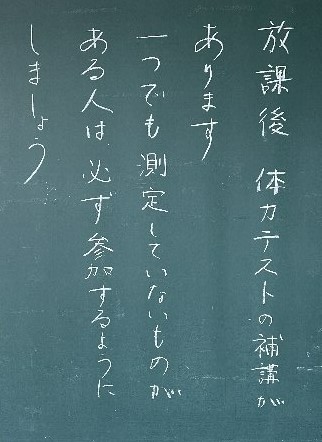 放課後 体力テストの補講が
あります
一つでも測定していないものが
ある人は、必ず参加するように
しましょう